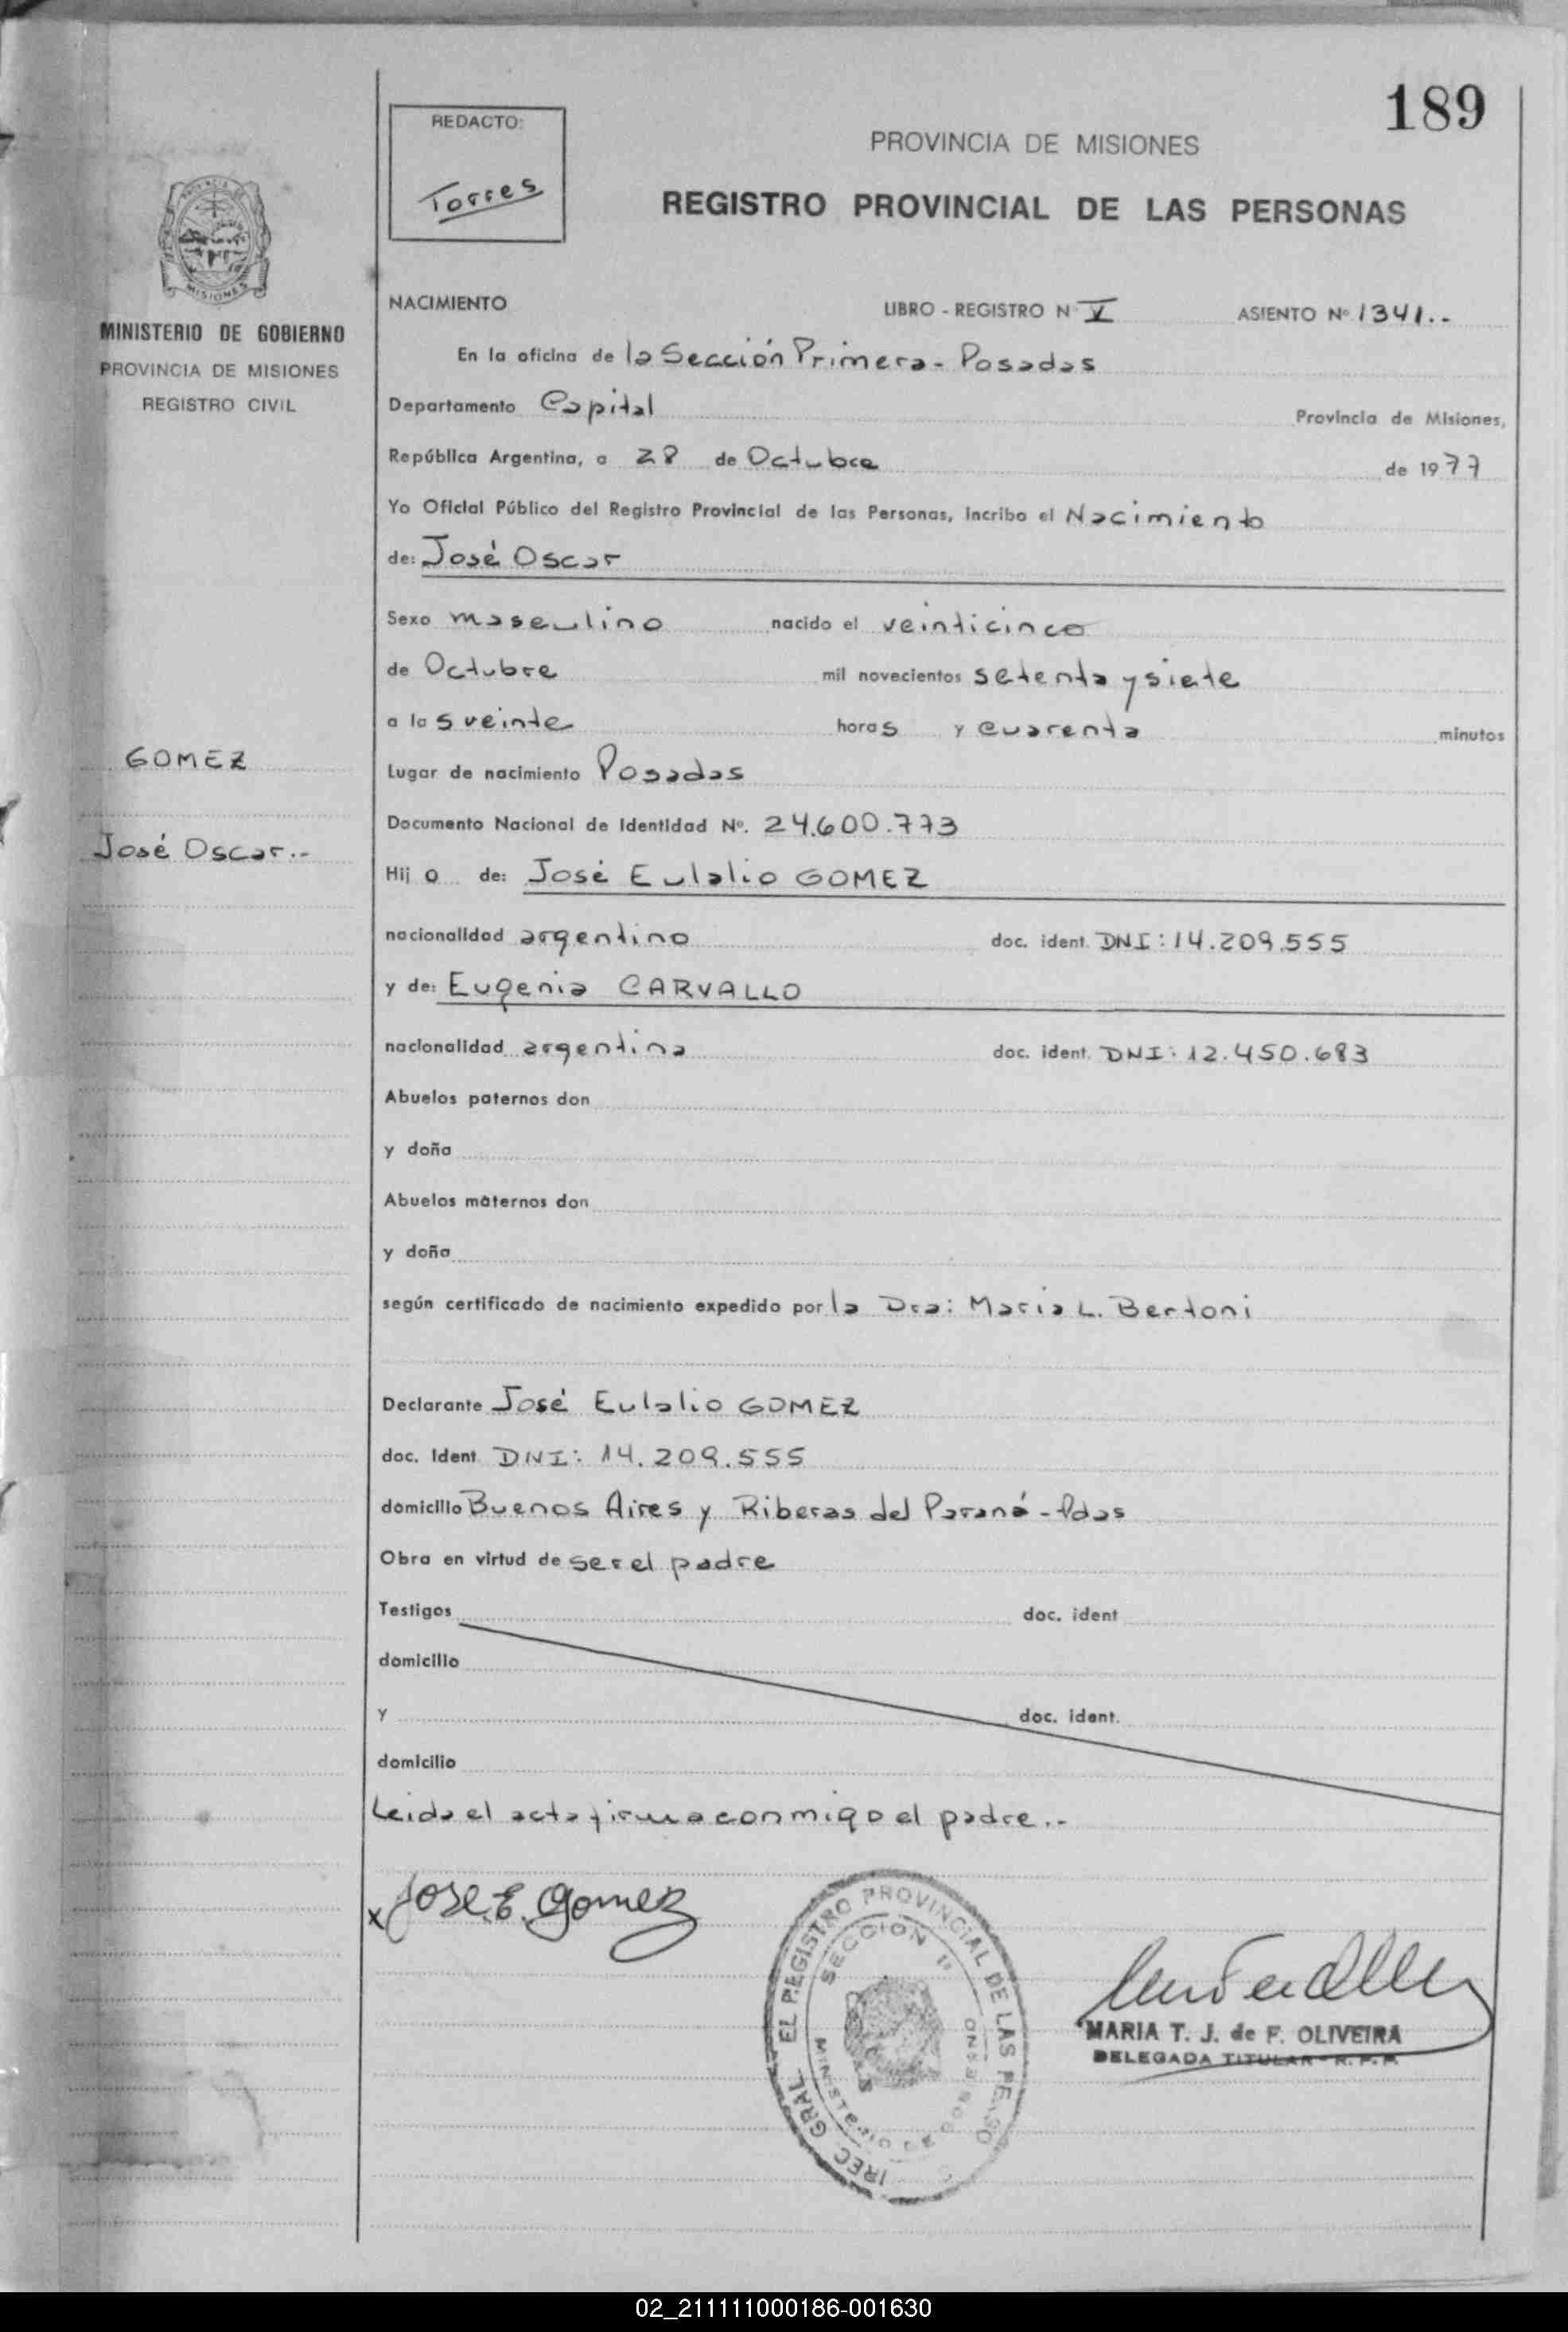 189
REDACTO:
Torres
PROVINCIA DE MISIONES
REGISTRO PROVINCIAL DE LAS PERSONAS
MISIONES
MINISTERIO DE GOBIERNO
PROVINCIA DE MISIONES
REGISTRO CIVIL
GOMEZ
José Oscar.-
NACIMIENTO LIBRO - REGISTRO N V ASIENTO Nº 1341.-
En la oficina de la Sección Primera - Posadas
Departamento Capital Provincia de Misiones,
República Argentina, a 28 de Octubre de 1977
Yo Oficial Público del Registro Provincial de las Personas, incribo el Nacimiento
de: José Oscar
Sexo masculino nacido el veinticinco
de Octubre mil novecientos setenta y siete
a las veinte horas y cuarenta minutos
Lugar de nacimiento Posadas
Documento Nacional de Identidad Nº. 24.600.773
Hijo de: José Eulalio GOMEZ
nacionalidad argentino doc. ident. DNI: 14.209.555
y de: Eugenia CARVALLO
nacionalidad argentina doc. ident. DNI: 12.450.683
Abuelos paternos don
y doña
Abuelos maternos don
y doña
según certificado de nacimiento expedido por la Dra: Maria L. Bertoni
Declarante José Eulalio GOMEZ
doc. Ident DNI: 14.209.555
domicilio Buenos Aires y Riberas del Paraná - Pdas
Obra en virtud de ser el padre
Testigos doc. ident
domicilio
y doc. ident.
domicilio
Leida el acta firma conmigo el padre.-
x Jose. E. Gomez
IREC GRAL EL REGISTRO PROVINCIAL DE LAS PE SO
SECCION 1ª
MINISTERIO DE GOBIERNO
MARIA T. J. de F. OLIVEIRA
DELEGADA TITULAR - R. P. P.
02_211111000186-001630